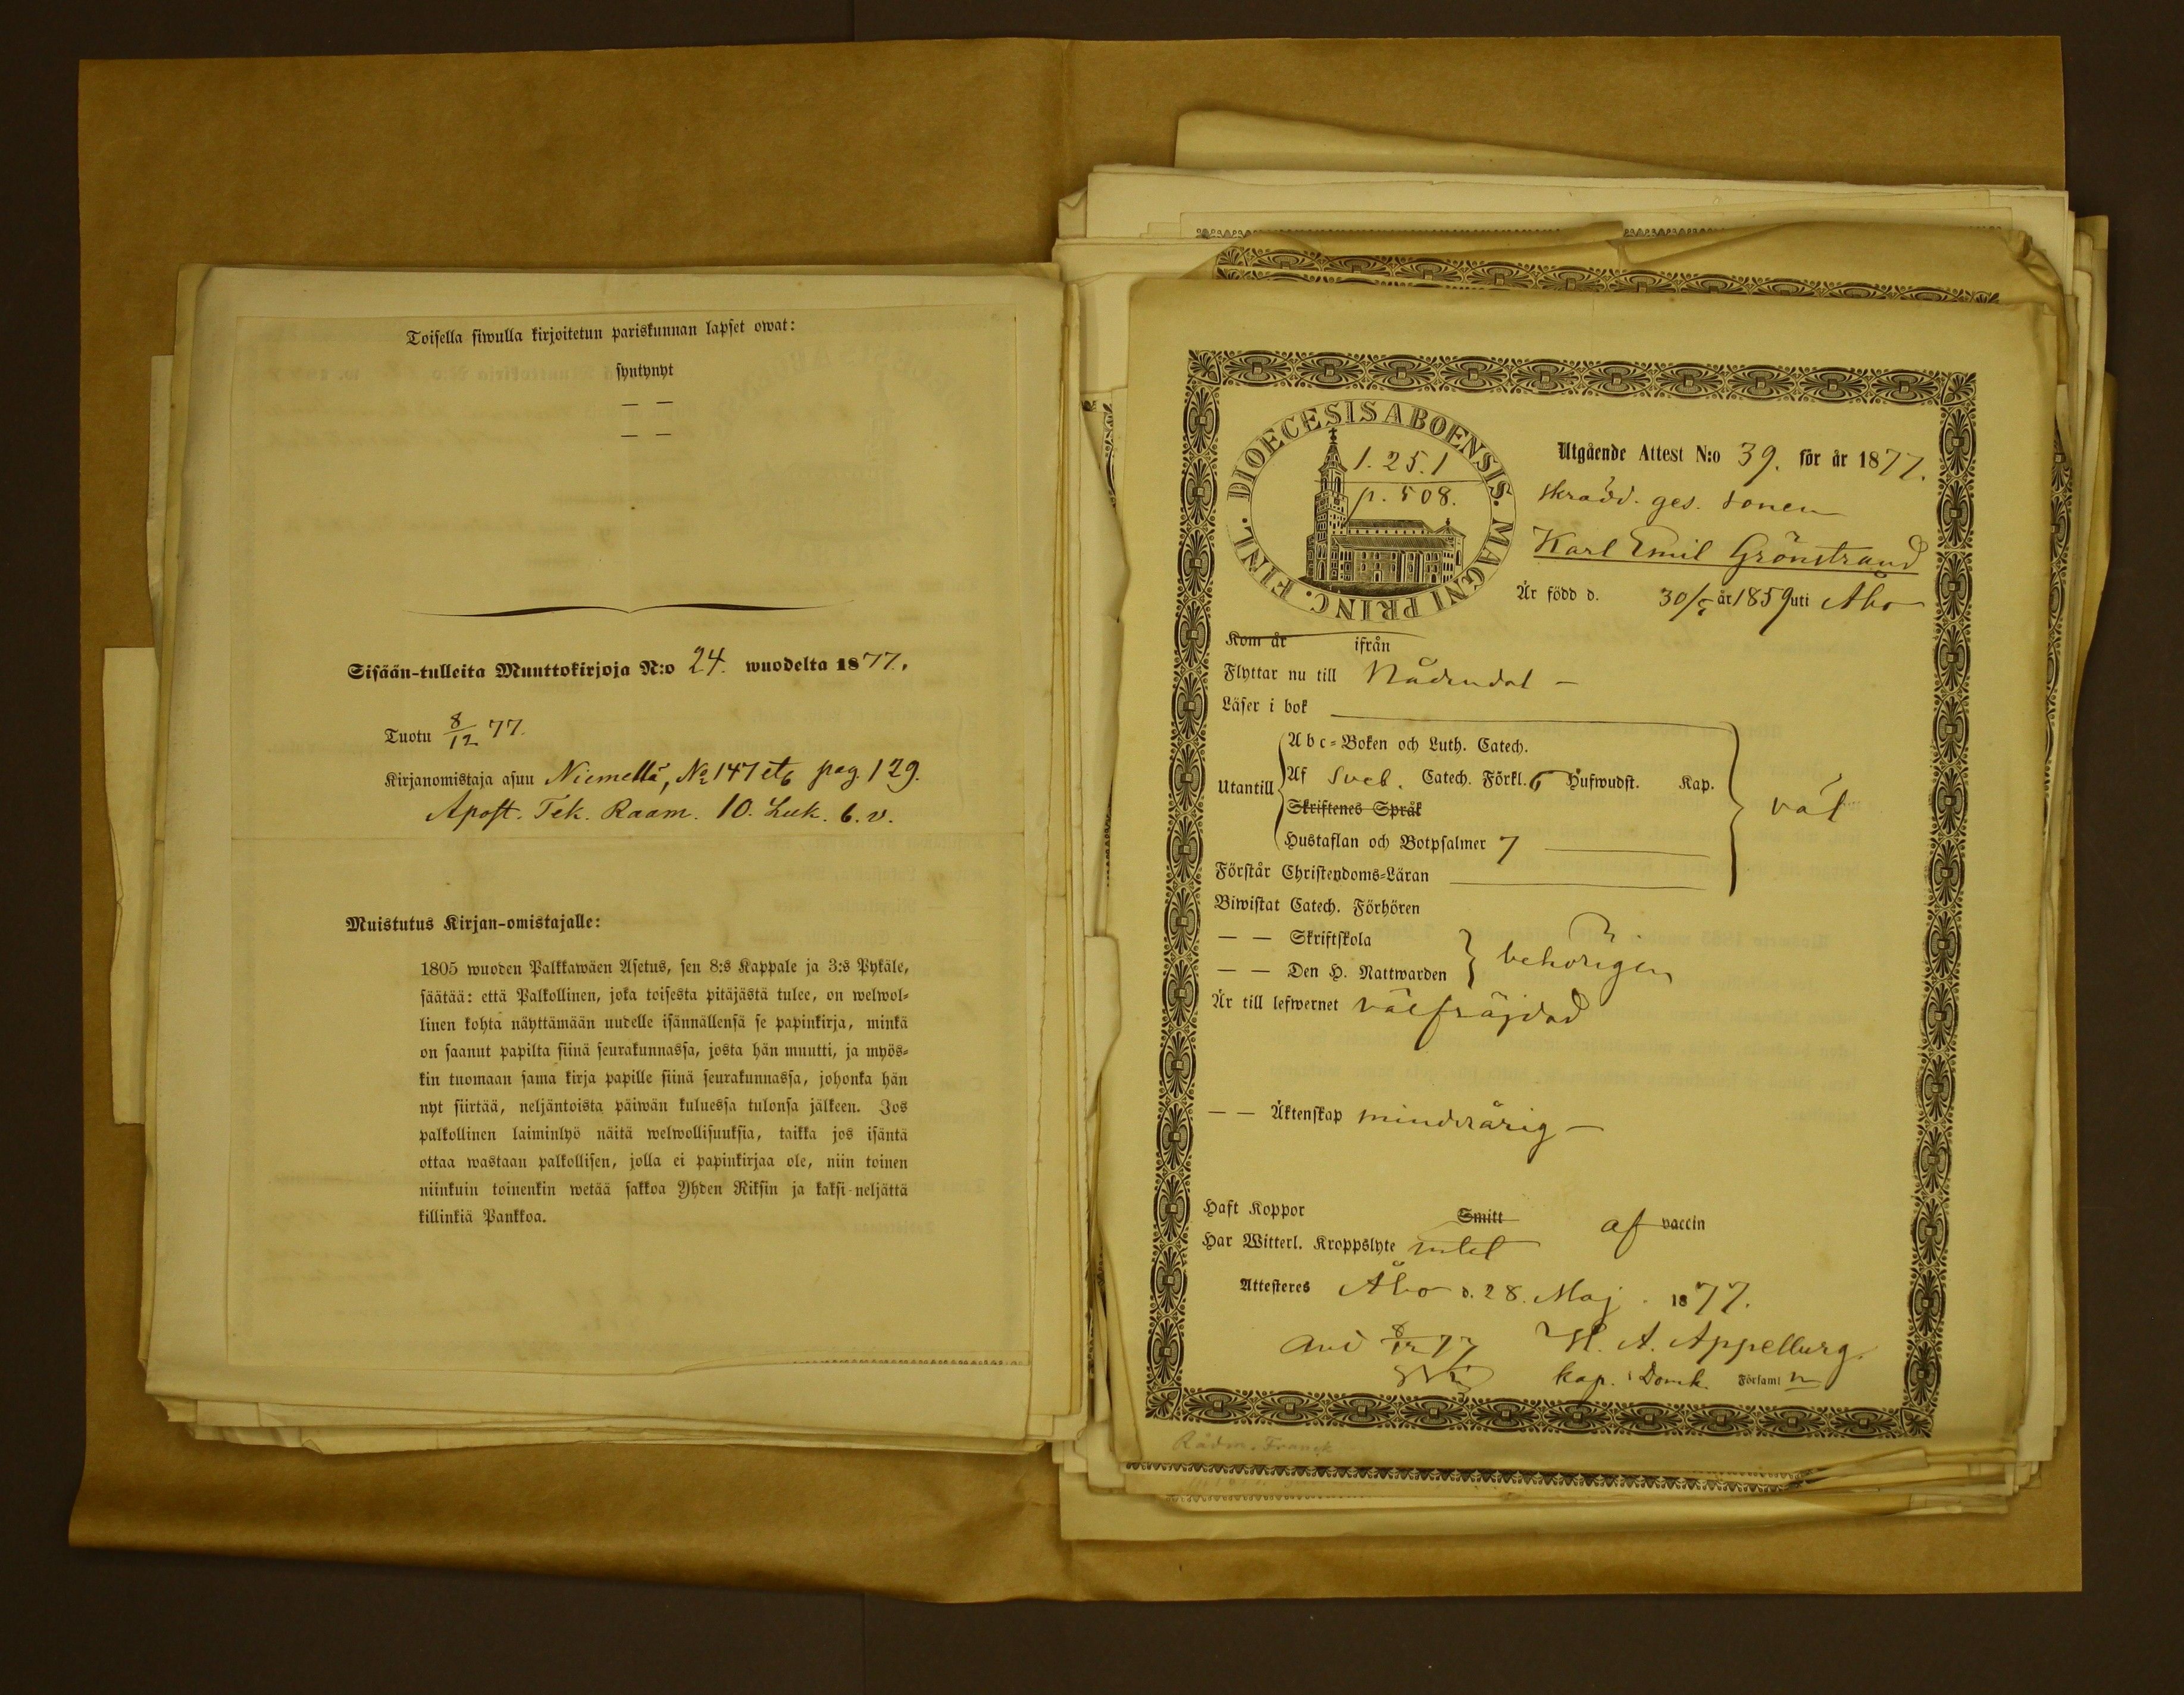 Toisella siwulla kirjoitetun pariskunnan lapset owat:
syntynyt
— —
— —
Sisään-tulleita Muuttokirjoja N:o 24. wuodelta 1877.
Tuotu 8/12 77.
Kirjanomistaja asuu Niemellä, No 147 pag. 129.
Apost. Tek. Raam. 10. Luk. 6. v.
Muistutus Kirjan-omistajalle:
1805 wuoden Palkkawäen Asetus, sen 8:s Kappale ja 3:s Pykäle,
säätää: että Palkollinen, joka toisesta pitäjästä tulee, on welwol-
linen kohta näyttämään uudelle isännällensä se papinkirja, minkä
on saanut papilta siinä seurakunnassa, josta hän muutti, ja myös-
kin tuomaan sama kirja papille siinä seurakunnassa, johonka hän
nyt siirtää, neljäntoista päiwän kuluessa tulonsa jälkeen. Jos
palkollinen laiminlyö näitä welwollisuuksia, taikka jos isäntä
ottaa wastaan palkollisen, jolla ei papinkirjaa ole, niin toinen
niinkuin toinenkin wetää sakkoa Yhden Riksin ja kaksi-neljättä
killinkiä Pankkoa.
DIOECESIS ABOENSIS. MAGNI PRINC. FINL.
1. 25. 1
p. 508.
Utgående Attest N:o 39. för år 1877.
skrädd. ges. sonen
Karl Emil Grönstrand
Är född d. 30/5 år 1859 uti Åbo
Kom år ifrån
Flyttar nu till Nådendal —
Läser i bok
Utantill
Abc-Boken och Luth. Catech.
Af Sveb. Catech. Förkl. 6 Hufwudst. Kap.
Skriftenes Språk
Hustaflan och Botpsalmer 7
väl
Förstår Christendoms-Läran
Biwistat Catech. Förhören
— — Skriftskola
— — Den H. Nattwarden
behörigen
Är till lefwernet välfräjdad
— — Äktenskap minderårig —
Haft Koppor Smitt af vaccin
Har Witterl. Kroppslyte intet
Attesteras Åbo d. 28. Maj. 1877.
8/12 77 H. A. Appelberg.
kap. i Domk. Församl n
Rådm. Franck